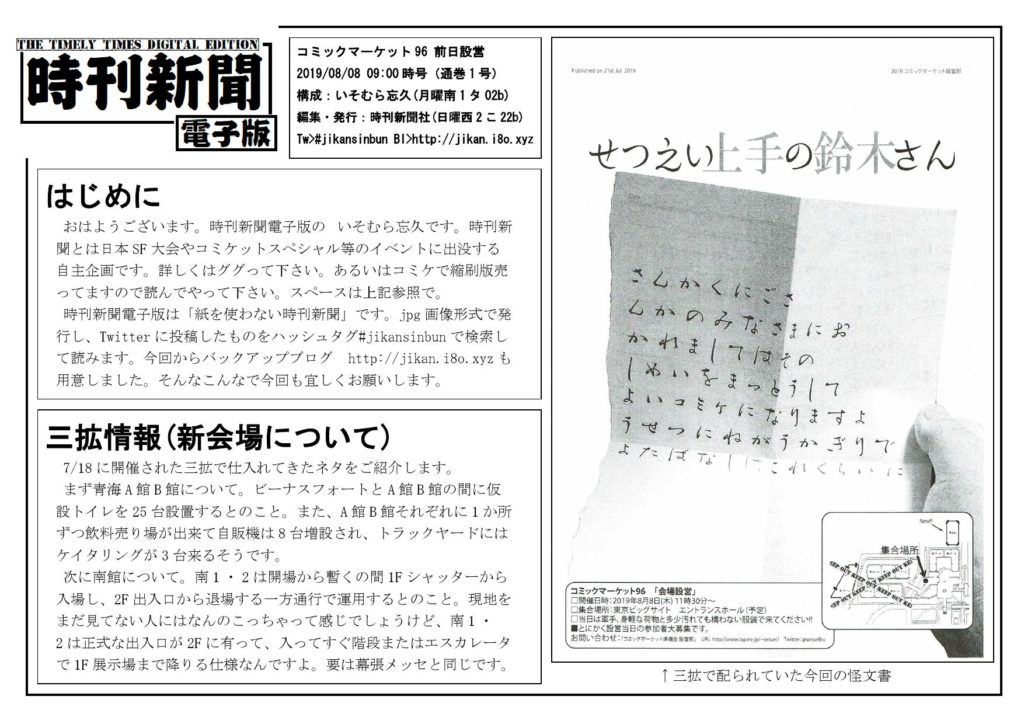 THE TIMELY TIMES DIGITAL EDITION
時刊新聞
電子版
コミックマーケット96 前日設営
2019/08/08 09:00時号（通巻1号）
構成：いそむら忘久(月曜南1タ02b)
編集・発行：時刊新聞社(日曜西2こ22b)
Tw>#jikansinbun Bl>http://jikan.i8o.xyz
はじめに
おはようございます。時刊新聞電子版の　いそむら忘久です。時刊新
聞とは日本SF大会やコミケットスペシャル等のイベントに出没する
自主企画です。詳しくはググって下さい。あるいはコミケで縮刷版売
ってますので読んでやって下さい。スペースは上記参照で。
時刊新聞電子版は「紙を使わない時刊新聞」です。jpg画像形式で発
行し、Twitterに投稿したものをハッシュタグ#jikansinbunで検索し
て読みます。今回からバックアップブログ　http://jikan.i8o.xyzも
用意しました。そんなこんなで今回も宜しくお願いします。
三拡情報(新会場について)
7/18に開催された三拡で仕入れてきたネタをご紹介します。
まず青海A館B館について。ビーナスフォートとA館B館の間に仮
設トイレを25台設置するとのこと。また、A館B館それぞれに1か所
ずつ飲料売り場が出来て自販機は8台増設され、トラックヤードには
ケイタリングが3台来るそうです。
次に南館について。南1・2は開場から暫くの間1Fシャッターから
入場し、2F出入口から退場する一方通行で運用するとのこと。現地を
まだ見てない人にはなんのこっちゃって感じでしょうけど、南1・
2は正式な出入口が2Fに有って、入ってすぐ階段またはエスカレータ
で1F展示場まで降りる仕様なんですよ。要は幕張メッセと同じです。
Published on 21st Jul. 2019
2019 コミックマーケット設営部
せつえい上手の鈴木さん
さんかくにごさ
んかのみなさまにお
かれましてはその
しめいをまっとうして
よいコミケになりますよ
うせつにねがうかぎりで
よたばなしはこれくらいに
New!!
集合場所
KEEP OUT KEEP OUT
コミックマーケット96　「会場設営」
□開催日時：2019年8月8日(木)11時30分～
□集合場所：東京ビッグサイト　エントランスホール（予定）
□当日は軍手、身軽な荷物と多少汚れても構わない服装で来てください!!
■とにかく設営当日の参加者大募集です。
お問い合わせ：「コミックマーケット準備会 設営部」
↑三拡で配られていた今回の怪文書